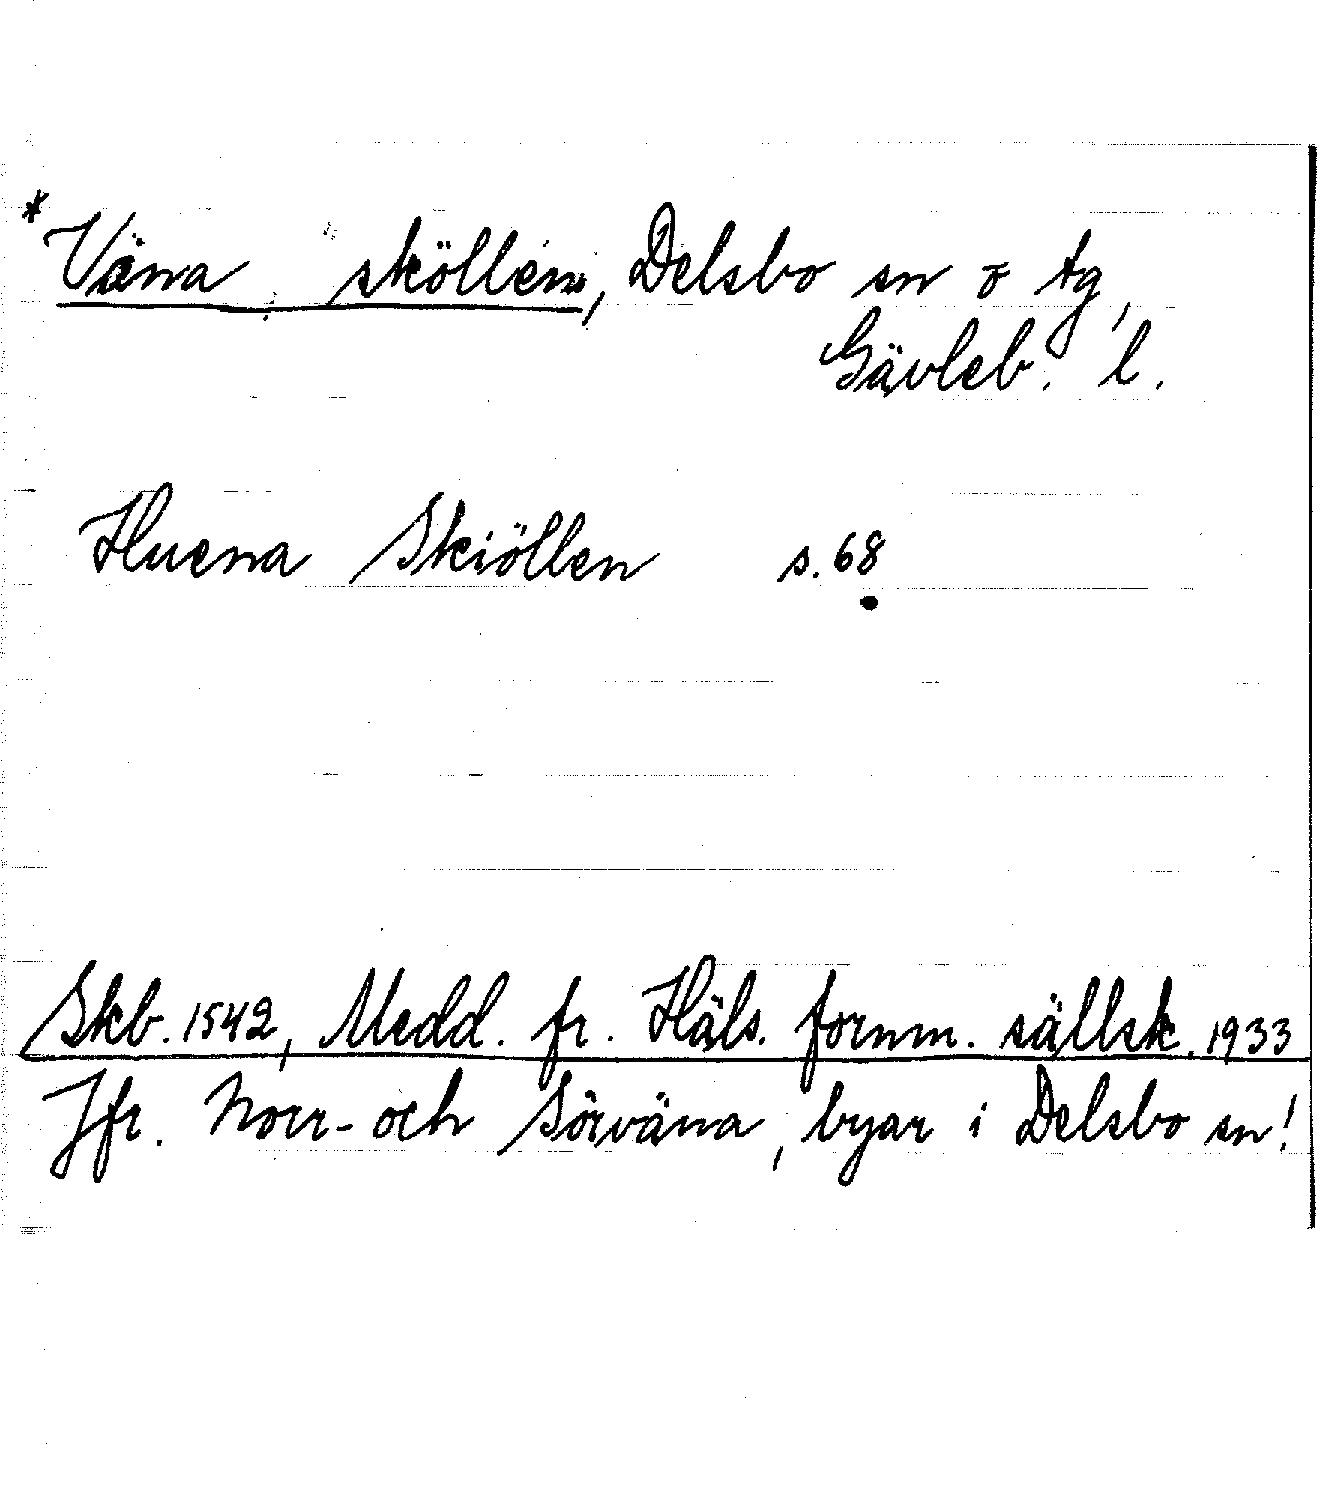 *Väna sköllen, Delsbo sn o tg,
Gävleb. l.
Huena Skiöllen s. 68
Skb. 1542, Medd. fr. Häls. fornm. sällsk. 1933
Jfr. Norr- och Sörväna, byar i Delsbo sn!